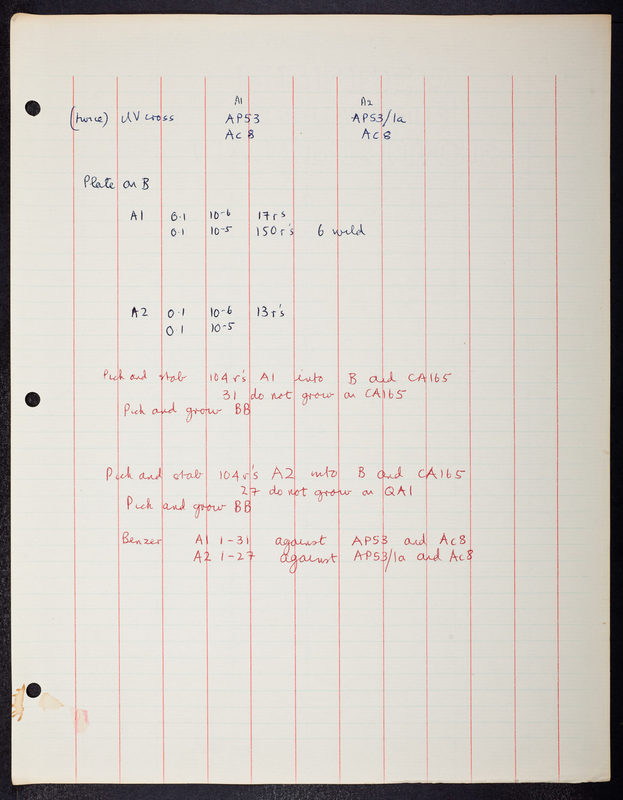 A1 A2
(twice) UV cross AP53 AP53/1a
Ac8 Ac8
Plate on B
A1 0.1 10-6 17r's
0.1 10-5 150r's 6 wild
A2 0.1 10-6 13r's
0.1 10-5
Pick and stab 104r's A1 into B and CA165
31 do not grow on CA165
Pick and grow BB
Pick and stab 104r's A2 into B and CA165
27 do not grow on QA1
Pick and grow BB
Benzer A1 1-31 against AP53 and Ac8
A2 1-27 against AP53/1a and Ac8